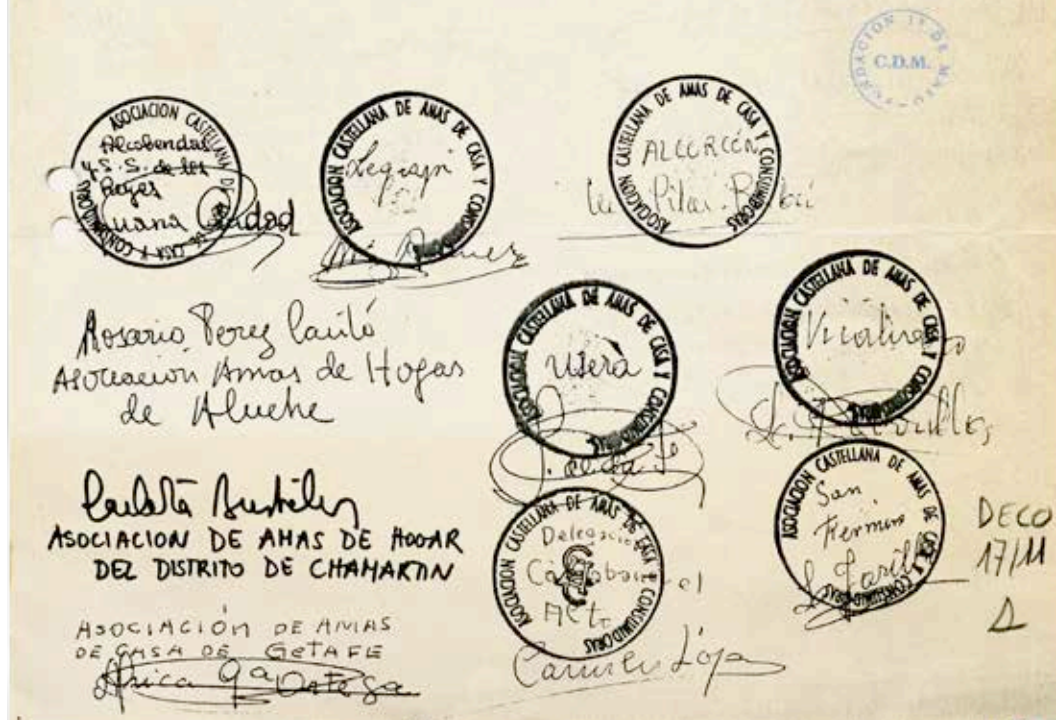 FUNDACION 1º DE MAYO
C.D.M.
ASOCIACION CASTELLANA DE AMAS DE CASA Y CONSUMIDORAS
Alcobendas
y S. S. de los
Reyes
Juana Ciudad
ASOCIACION CASTELLANA DE AMAS DE CASA Y CONSUMIDORAS
Legazpi
ASOCIACION CASTELLANA DE AMAS DE CASA Y CONSUMIDORAS
ALCORCÓN
Pilar
Rosario Perez
Asociación Amas de Hogar
de Aluche
ASOCIACION CASTELLANA DE AMAS DE CASA Y CONSUMIDORAS
Usera
ASOCIACION CASTELLANA DE AMAS DE CASA Y CONSUMIDORAS
Vicálvaro
ASOCIACION DE AMAS DE HOGAR
DEL DISTRITO DE CHAMARTIN
ASOCIACION CASTELLANA DE AMAS DE CASA Y CONSUMIDORAS
Delegación
Carabanchel
Alto
Carmen López
ASOCIACION CASTELLANA DE AMAS DE CASA Y CONSUMIDORAS
San
Fermín
DECO
17/11
1
ASOCIACIÓN DE AMAS
DE CASA DE GETAFE
Africa Gª Ortega